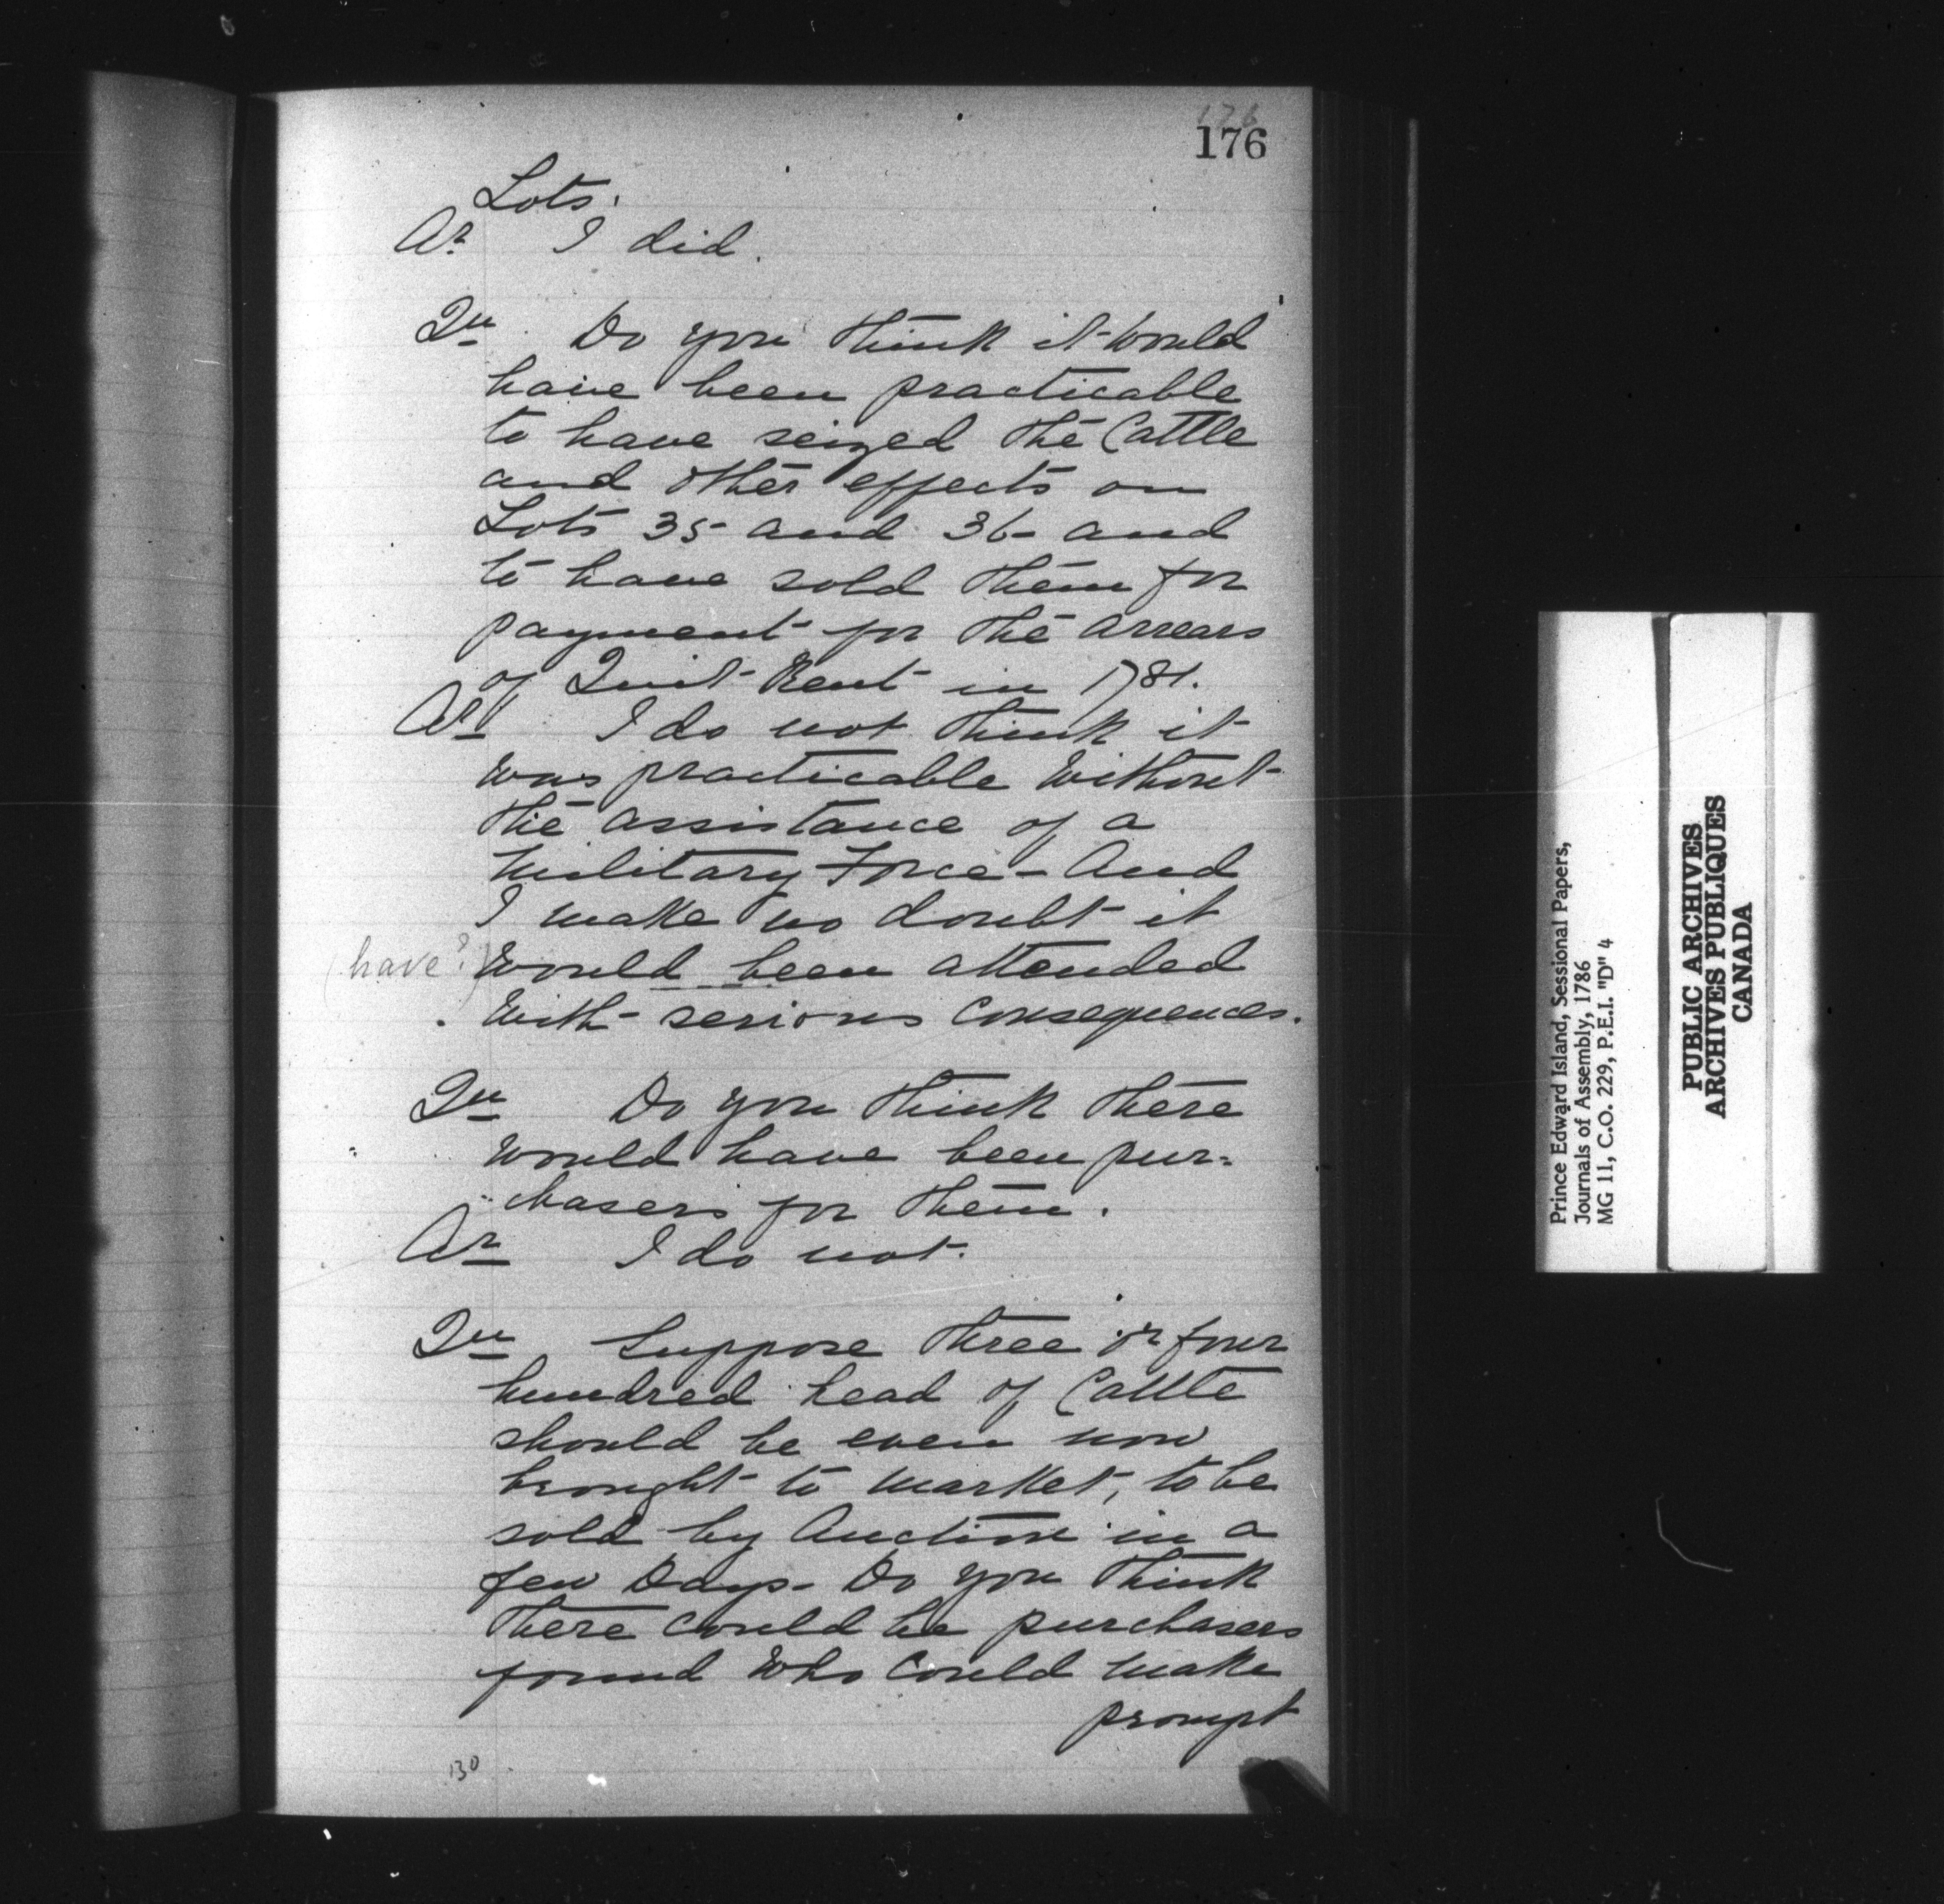 176
176
Lots.
Ar I did.
Qu Do you think it would
have been practicable
to have seized the Cattle
and other effects on
Lots 35 and 36 - and
to have sold them for
payment for the arrears
of Quit Rent in 1781.
Ar I do not think it
was practicable without
the assistance of a
military Force - And
I make no doubt it
(have?) would been attended
with serious Consequences.
Qu Do you think there
would have been pur=
chasers for them.
Ar I do not.
Qu Suppose three or four
hundred head of Cattle
should be even now
brought to market, to be
sold by Auction in a
few Days - Do you think
there could be purchasers
found who could make
prompt
130
Prince Edward Island, Sessional Papers,
Journals of Assembly, 1786
MG 11, C.O. 229, P.E.I. "D" 4
PUBLIC ARCHIVES
ARCHIVES PUBLIQUES
CANADA